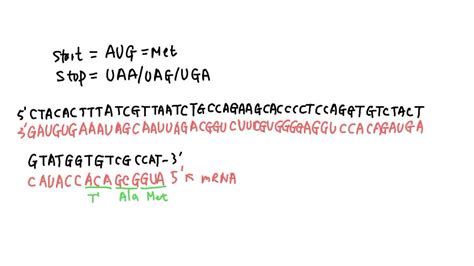 Start = AUG = Met
Stop = UAA/UAG/UGA
5' CTACACTTTATCGTTAATCTGCCAGAAGCACCCCTCCAGGTGTCTACT
3' GAUGUGAAAUAGCAAUUAGACGGUCUUCGUGGGGAGGUCCACAGAUGA
GTATGGTGTCGCCAT-3'
CAUACCACAGCGGUA 5' ↖ mRNA
T' Ala Met